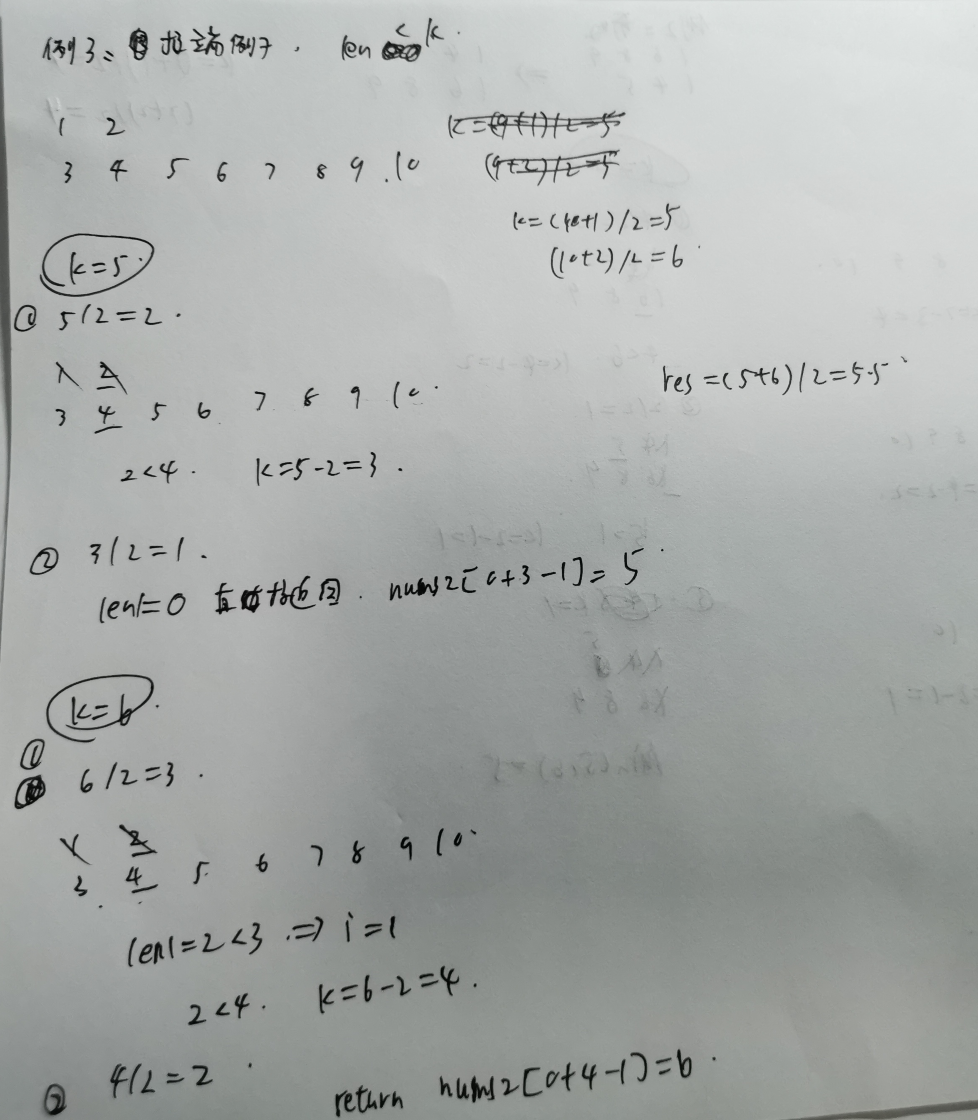 例3、极端例子. len < k.
1 2
3 4 5 6 7 8 9 .10
k=(9+1)/2=5
(9+2)/2=5
k=(10+1)/2=5
(10+2)/2=6
k=5
① 5/2=2.
1 2
3 4 5 6 7 8 9 10.
res=(5+6)/2=5.5
2<4. k=5-2=3.
② 3/2=1.
len1=0 nums2[0+3-1]=5
k=6.
①
6/2=3.
1 2
3 4 5 6 7 8 9 10.
len1=2<3 => i=1
2<4. k=6-2=4.
② 4/2=2.
return nums2[0+4-1]=6.